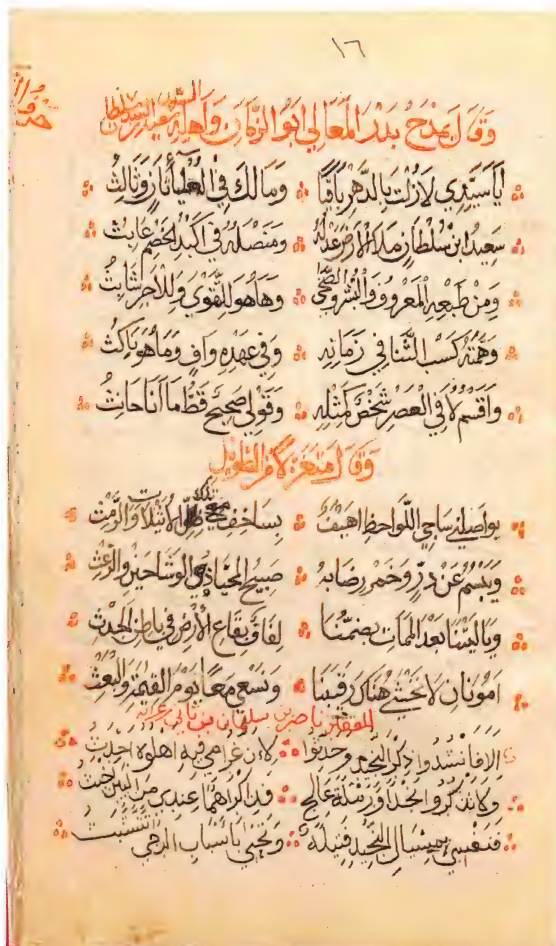 ١٦
وقال يمدح بدر المعالي ابو الزمان واهله السيد سعيد بن السيد سلطان
أيا سيدي لا زلت بالدهر باقيا ومالك في العلياء ثان وثالث
سعيد ابن سلطان ملا الارض عدله ومنصله في اكبد الخصم عابث
ومن طبعه المعروف والبشر والضحى وها هو للتقوى وللاجر شابث
وهمته كسب الثنا في زمانه وفي عهده واف وما هو ناكث
واقسم لا في العصر شخص كمثله وقولي صحيح قط ما انا حانث
وقال متغزلا من الطويل
يواصلني ساجي اللواحظ اهيف بساحف ظل الأثلات والرمث
ويبسم عن در وخمر رضابه صبيح المحيا ذي الوشاحين والرعث
ويا ليتنا بعد الممات يضمنا لفاق بقاع الأرض في باطن الجدث
امونان لا نخشى هناك رقيبنا ونسعى معا يوم القيمة والبعث
ناصر بن سليمان بن
الا فانشدوا ذكر النجيد وحدثوا لان غرامي فيه اهلوه احدثوا
ورنلة عالج عندي من البين
فنفسي النجيد قتيلة باسباب تتشبث